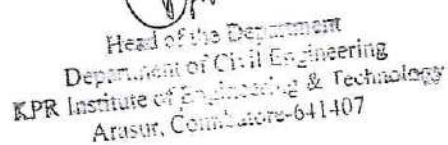 Head of the Department
Department of Civil Engineering
KPR Institute of Engineering & Technology
Arasur, Coimbatore-641407